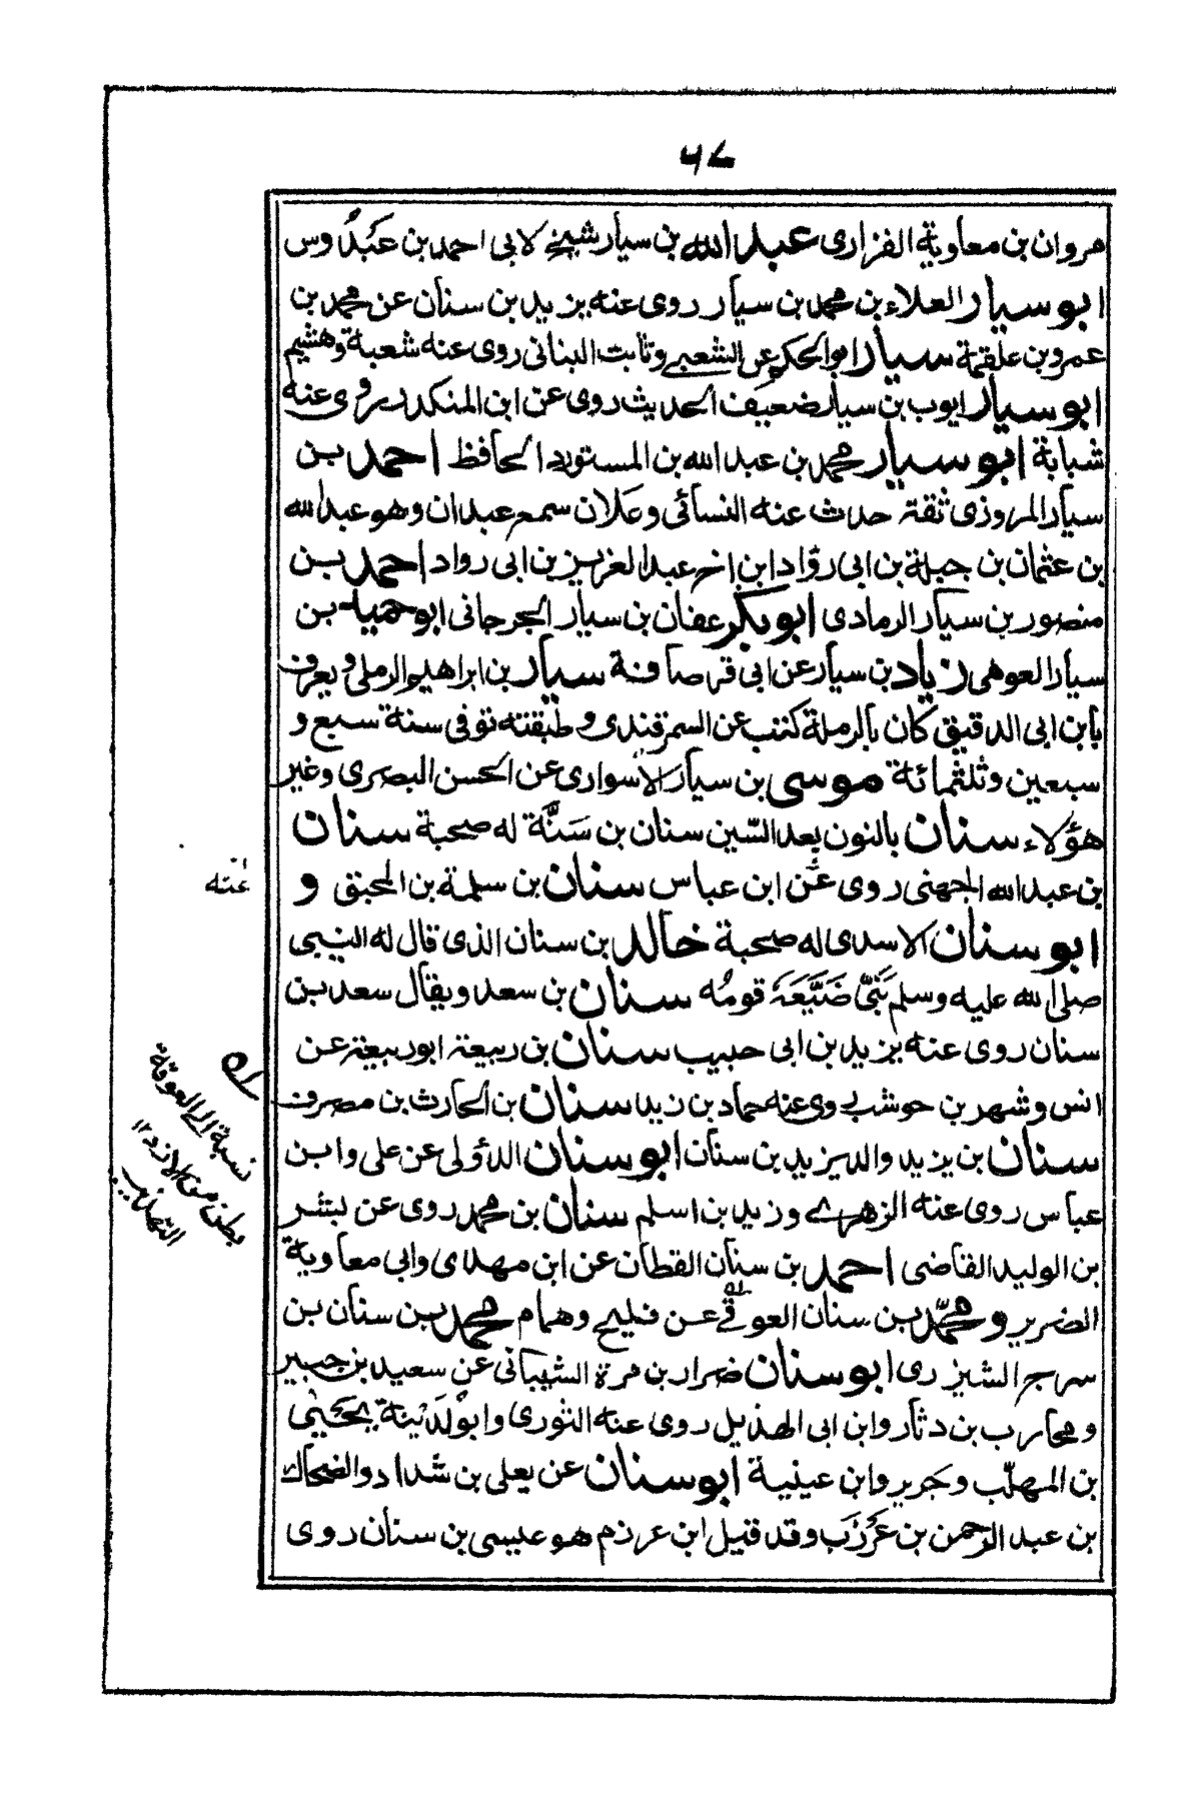 ٦٧
مروان بن معاوية الفزارى عبد الله بن سيار شيخ لابى احمد بن عبدُوس
ابو سيار العلاء بن محمد بن سيار روى عنه يزيد بن سنان عن محمد بن
عمرو بن علقمة سيار ابو الحكم عن الشعبي وثابت البنانى روى عنه شعبة وهشيم
ابو سيار ايوب بن سيار ضعيف الحديث روى عن ابن المنكدر روى عنه
شبابة ابو سيار محمد بن عبد الله بن المستورد الحافظ احمد بن
سيار المروزى ثقة حدث عنه النسائى وعلان سمع عبدان وهو عبد الله
بن عثمان بن جبلة بن ابى روّاد ابن اخى عبد العزيز بن ابى رواد احمد بن
منصور بن سيار الرمادى ابو بكر عفان بن سيار الجرجانى ابو حمية بن
سيار العوهى زياد بن سيار عن ابى قرصافة سيار بن ابراهيم الرملى ويعرف
بابن ابى الدقيق كان بالرملة كتب عن السمرقندى وطبقته توفى سنة سبع و
سبعين وثلثمائة موسى بن سيار الاسوارى عن الحسن البصرى وغير
هؤلاء سنان بالنون بعد السّين سنان بن سَنَّة له صحبة سنان
بن عبد الله الجهنى روى عن ابن عباس سنان بن سلمة بن المحبق و
ابو سنان الاسدى له صحبة خالد بن سنان الذى قال له النبى
صلى الله عليه وسلم نَبِىّ ضَيَّعَهُ قومُه سنان بن سعد ويقال سعد بن
سنان روى عنه يزيد بن ابى حبيب سنان بن ربيعة ابو ربيعة عن
انس وشهر بن حوشب روى عنه حماد بن زيد سنان بن الحارث بن مصرف
سنان بن يزيد والد يزيد بن سنان ابو سنان الدؤلى عن على وابن
عباس روى عنه الزهرى وزيد بن اسلم سنان بن محمد روى عن بشر
بن الوليد القاضى احمد بن سنان القطان عن ابن مهدى وابى معاوية
الضرير ومحمّد بن سنان العوقى عن فليح وهمام محمد بن سنان بن
سرج الشيزرى ابو سنان ضرار بن مرة الشيبانى عن سعيد بن جبير
ومحارب بن دثار وابن ابى الهذيل روى عنه الثورى وابو كدينة يحيى
بن المهلّب وجرير وابن عيينة ابو سنان عن يعلى بن شداد والضحاك
بن عبد الرحمن بن عَرْزَب وقد قيل ابن عرزم هو عيسى بن سنان روى
عنه
نسبة الى العوقة
بطن من الازد ١٢
التهذيب